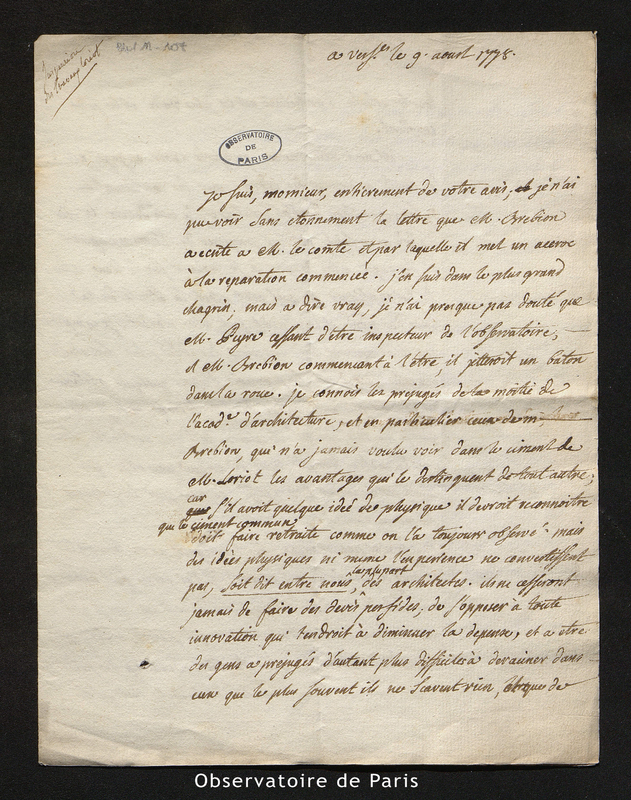 Suspension
des travaux Loriot
a Vers.les le 9. aoust 1778.
OBSERVATOIRE
DE
PARIS
Je suis, monsieur, entierement de votre avis; je n'ai
pu voir sans etonnement la lettre que M. Brebion
a ecrite a M. le comte et par laquelle il met un
à la reparation commencée. j'en suis dans le plus grand
chagrin, mais a dire vray, je n'ai presque pas douté que
M. Peyre cessant d'être inspecteur de l'observatoire,
et M. Brebion commencant à l'être, il jetteroit un baton
dans la roue. je connois les préjugés de la moitié de
l'acad.e d'architecture, et en particulier ceux de m.
Brebion, qui n'a jamais voulu voir dans le ciment de
M. Loriot les avantages qui le distinguent de tout autre;
car s'il avoit quelque idée de physique il devroit reconnoitre
que le ciment commun
doit faire retraite comme on l'a toujours observé. mais
des idées physiques ni meme l'experience ne convertissent
pas, soit dit entre nous, la plupart des architectes. ils ne cesseront
jamais de faire des devis perfides, de s'opposer à toute
innovation qui tendroit à diminuer la depense, et a etre
des gens a prejugés d'autant plus difficiles à deraciner dans
ceux que le plus souvent ils ne scavent rien, de
Observatoire de Paris